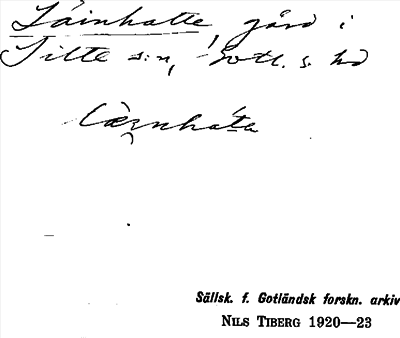 Läinhatte, gård i
Silte s:n, Gotl. s. hd
Sällsk. f. Gotländsk forskn. arkiv
NILS TIBERG 1920—23